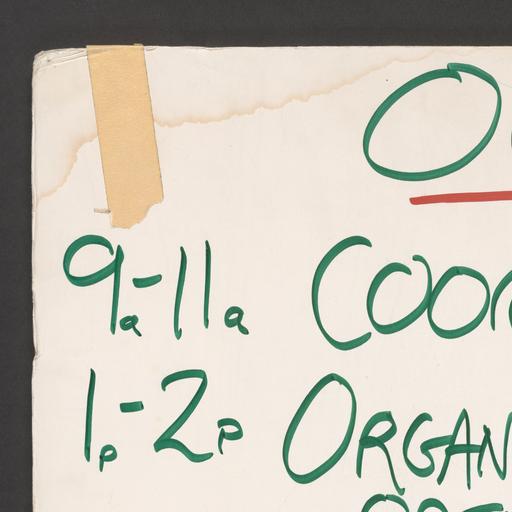 9a-11a COOR
1p-2p ORGAN